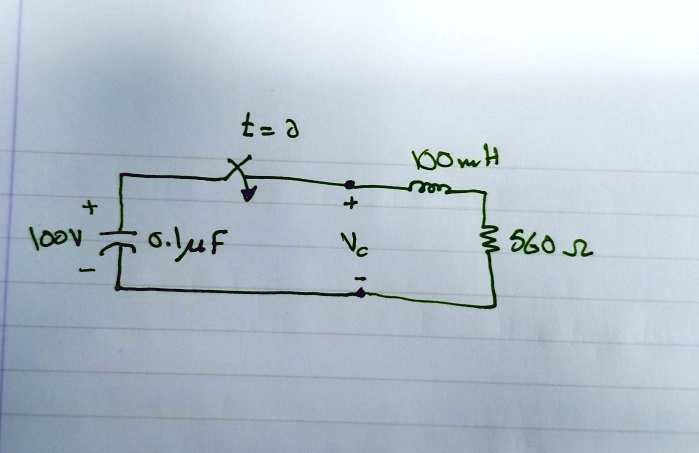 t = 0
100mH
+
+
100V
0.1μF
Vc
560 Ω
-
-